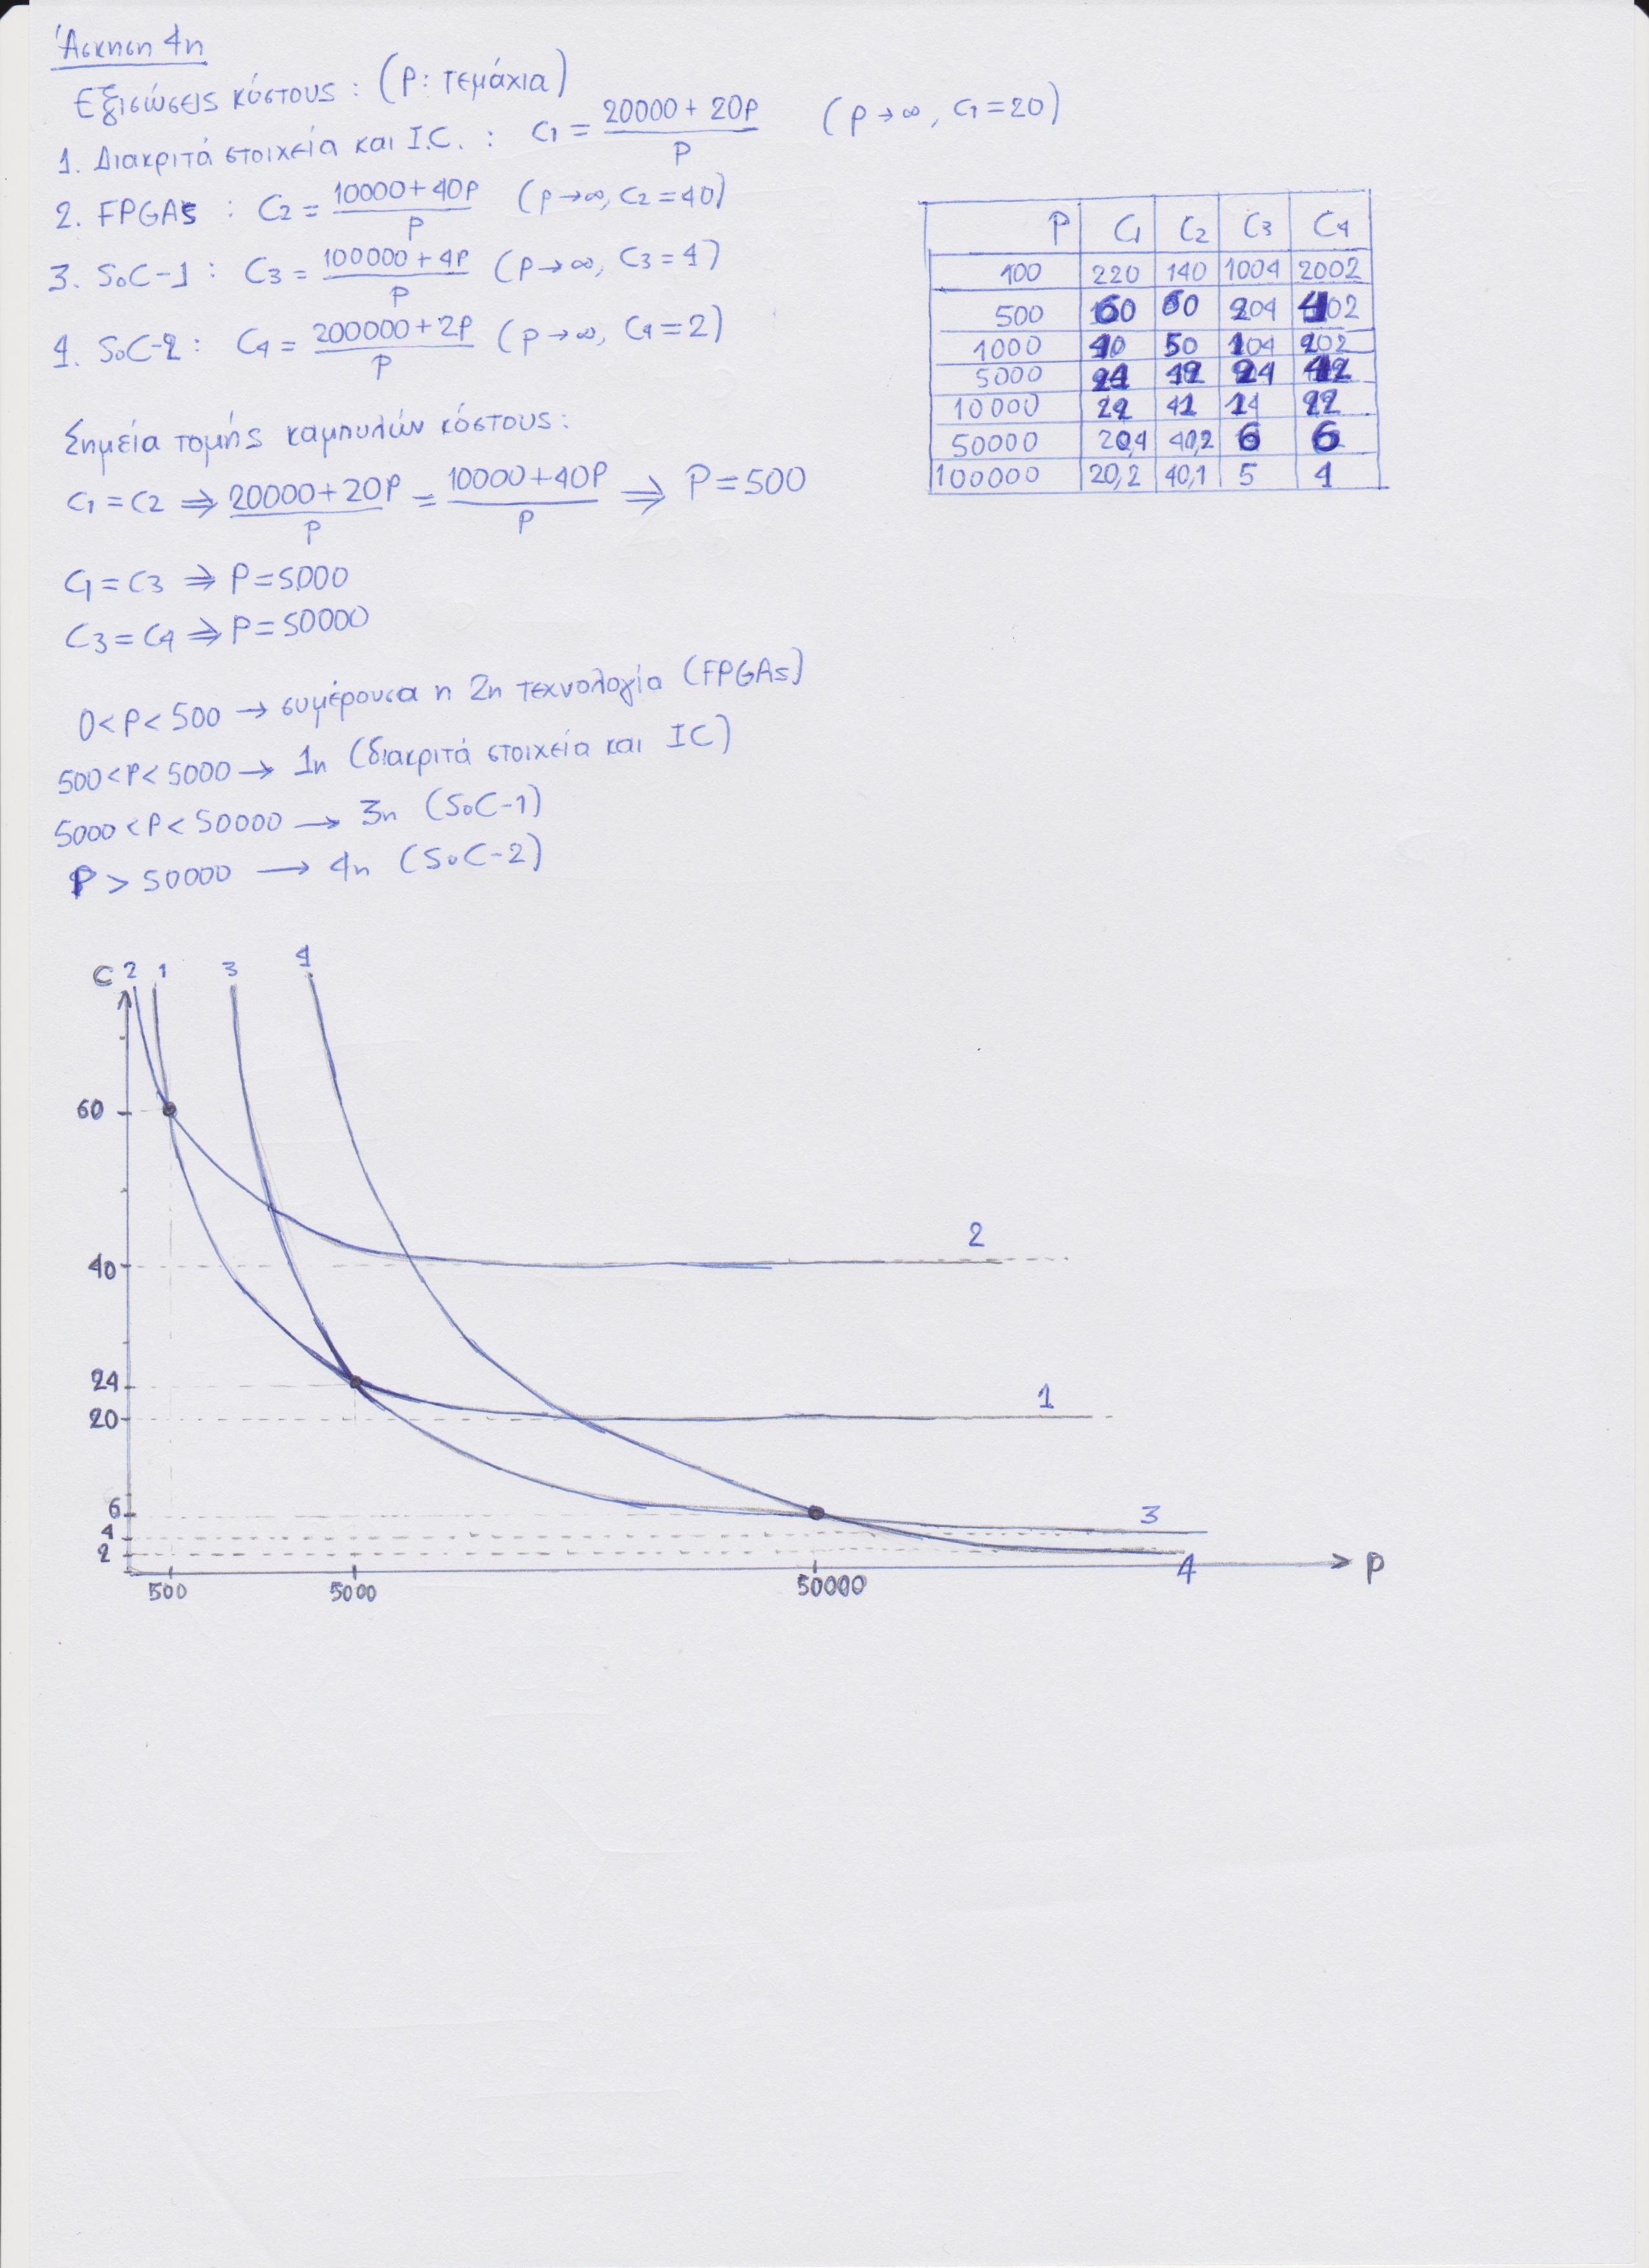 Άσκηση 4η
Εξισώσεις κόστους : (P: τεμάχια)
1. Διακριτά στοιχεία και I.C. : C1 = (20000 + 20P)/P (P→∞, C1=20)
2. FPGAs : C2 = (10000+40P)/P (P→∞, C2=40)
3. SoC-1 : C3 = (100000+4P)/P (P→∞, C3=4)
4. SoC-2 : C4 = (200000+2P)/P (P→∞, C4=2)
P C1 C2 C3 C4
100 220 140 1004 2002
500 60 60 204 402
1000 40 50 104 202
5000 24 42 24 42
10000 22 41 14 22
50000 20,4 40,2 6 6
100000 20,2 40,1 5 4
Σημεία τομής καμπυλών κόστους :
C1 = C2 ⇒ (20000+20P)/P = (10000+40P)/P ⇒ P=500
C1=C3 ⇒ P=5000
C3=C4 ⇒ P=50000
0<P<500 → συμέρουσα η 2η τεχνολογία (FPGAs)
500<P<5000 → 1η (διακριτά στοιχεία και IC)
5000<P<50000 → 3η (SoC-1)
P > 50000 → 4η (SoC-2)
C 2 1 3 4
60
2
40
24
1
20
6
3
4
2
4
P
500 5000 50000